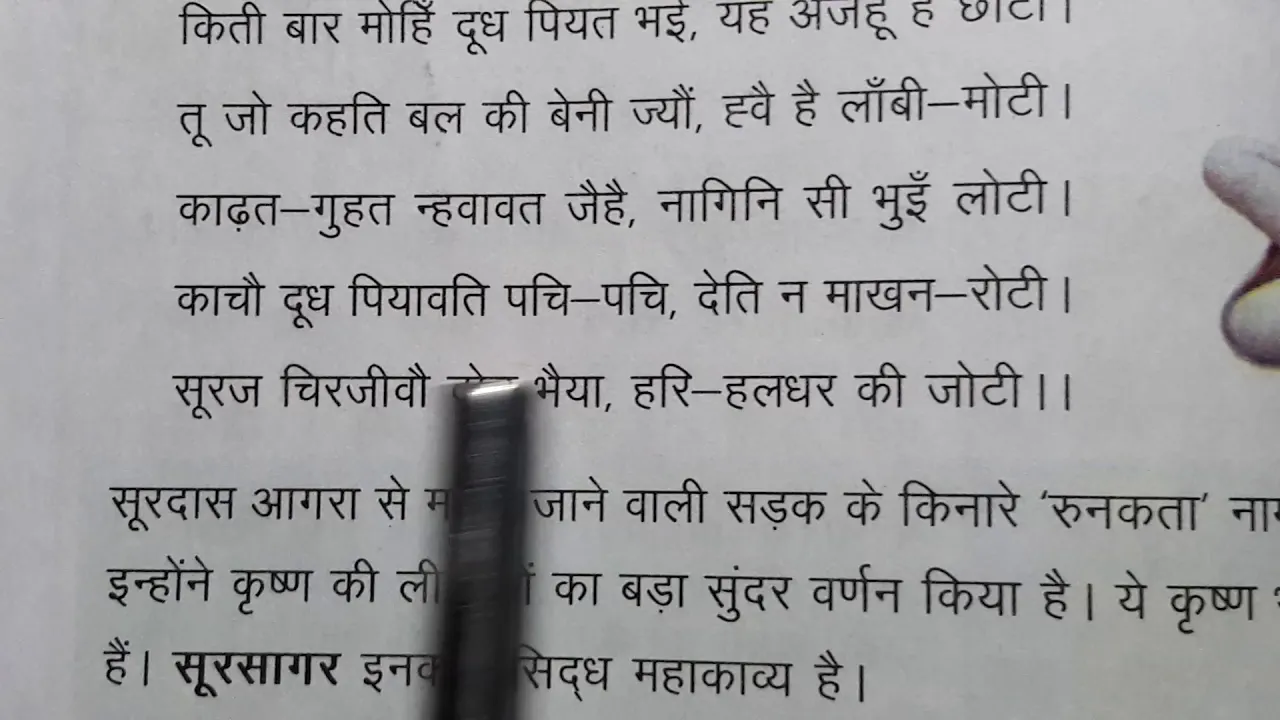 किती बार मोहिँ दूध पियत भई, यह अजहूँ है छोटी।
तू जो कहति बल की बेनी ज्यौं, ह्वै है लाँबी–मोटी।
काढ़त–गुहत न्हवावत जैहै, नागिनि सी भुइँ लोटी।
काचौ दूध पियावति पचि–पचि, देति न माखन–रोटी।
सूरज चिरजीवौ भैया, हरि–हलधर की जोटी।।
सूरदास आगरा से जाने वाली सड़क के किनारे ‘रुनकता’
इन्होंने कृष्ण की का बड़ा सुंदर वर्णन किया है। ये कृष्ण
हैं। सूरसागर महाकाव्य है।